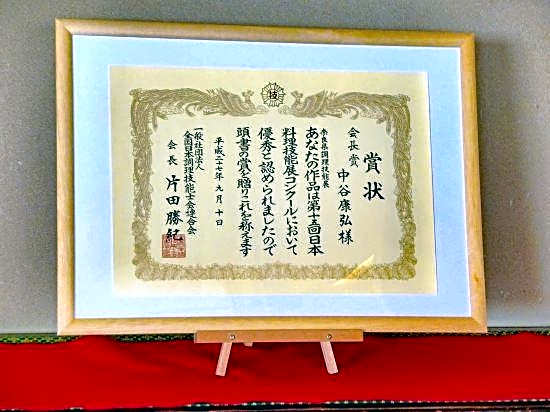 技
賞状
会長賞 中谷康弘様
奈良県調理技能展
あなたの作品は第十五回日本
料理技能展コンクールにおいて
優秀と認められましたので
頭書の賞を贈りこれを称えます
平成二十七年九月十日
一般社団法人
全国日本調理技能士会連合会
会長 片田勝紀